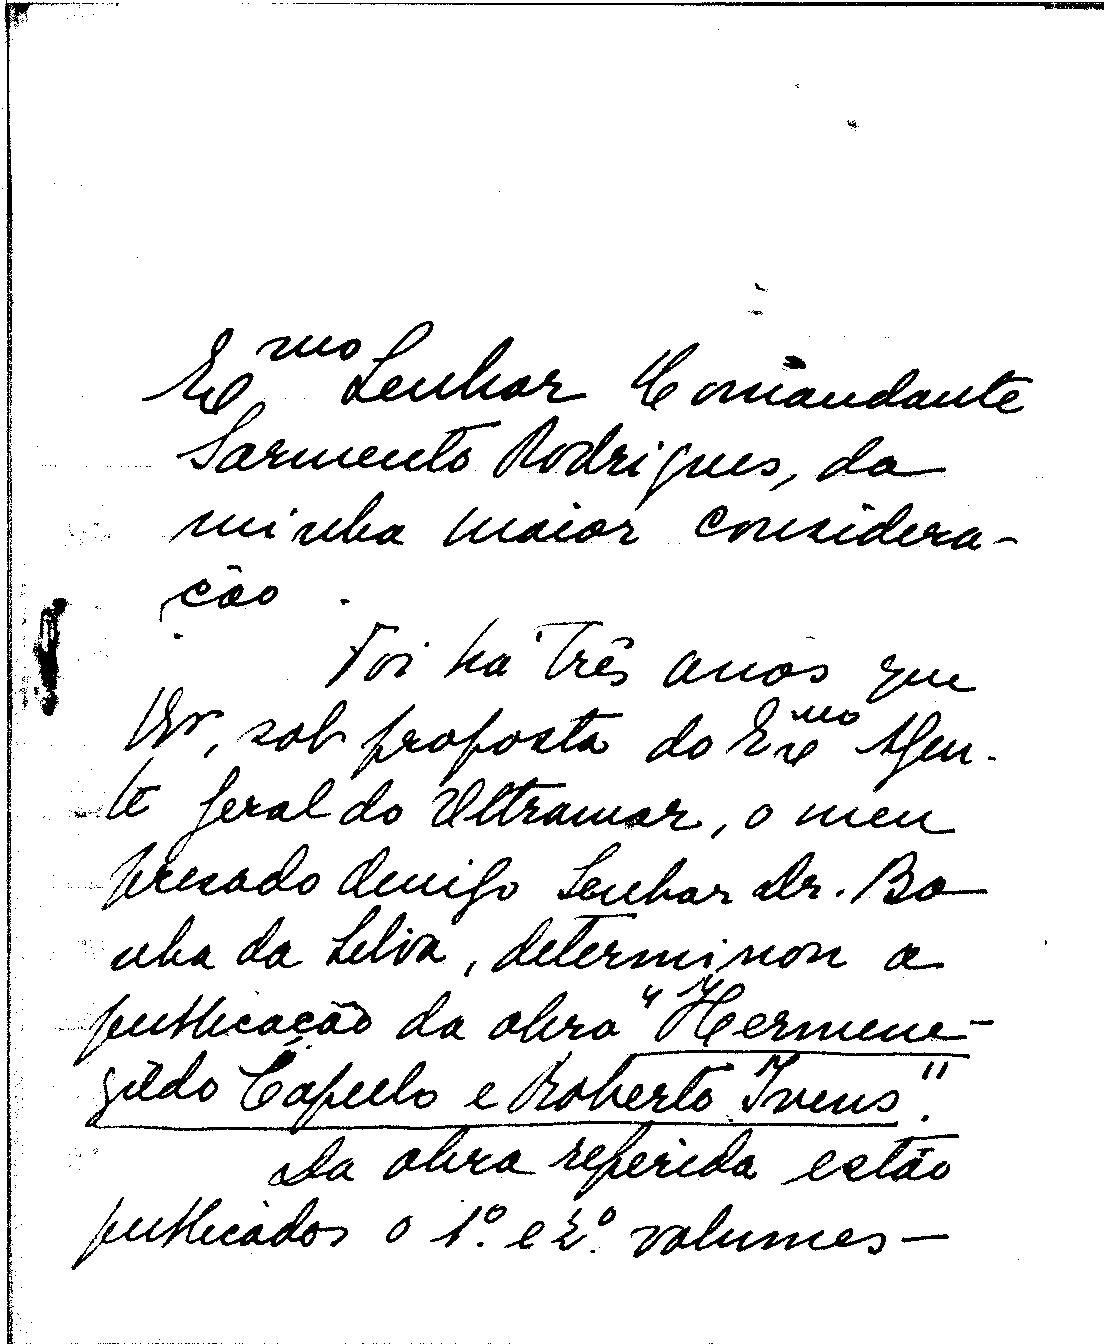 Exmo Senhor Comandante
Sarmento Rodrigues, da
minha maior considera-
ção.
Foi há três anos que
V., sob proposta do Exmo Agen-
te Geral do Ultramar, o meu
presado Amigo Senhor Dr. Ba
nha da Silva, determinou a
publicação da obra "Hermene-
gildo Capelo e Roberto Ivens".
Da obra referida estão
publicados o 1º. e 2º. volumes —